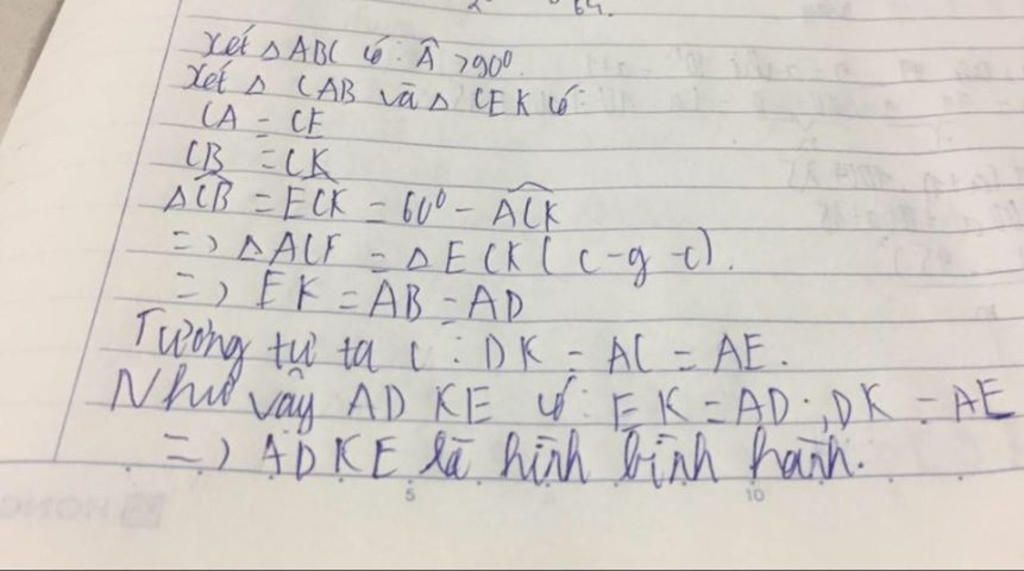 64.
Xét △ ABC có: Â > 90⁰.
Xét △ CAB và △ CEK có:
CA = CE
CB = CK
△CB = ECK = 60⁰ - ACK
=> △ ACF = △ ECK ( c-g-c).
=> EK = AB = AD
Tương tự ta c : DK = AC = AE.
Như vậy ADKE có: EK = AD ; DK = AE
=> ADKE là hình bình hành.
5 10